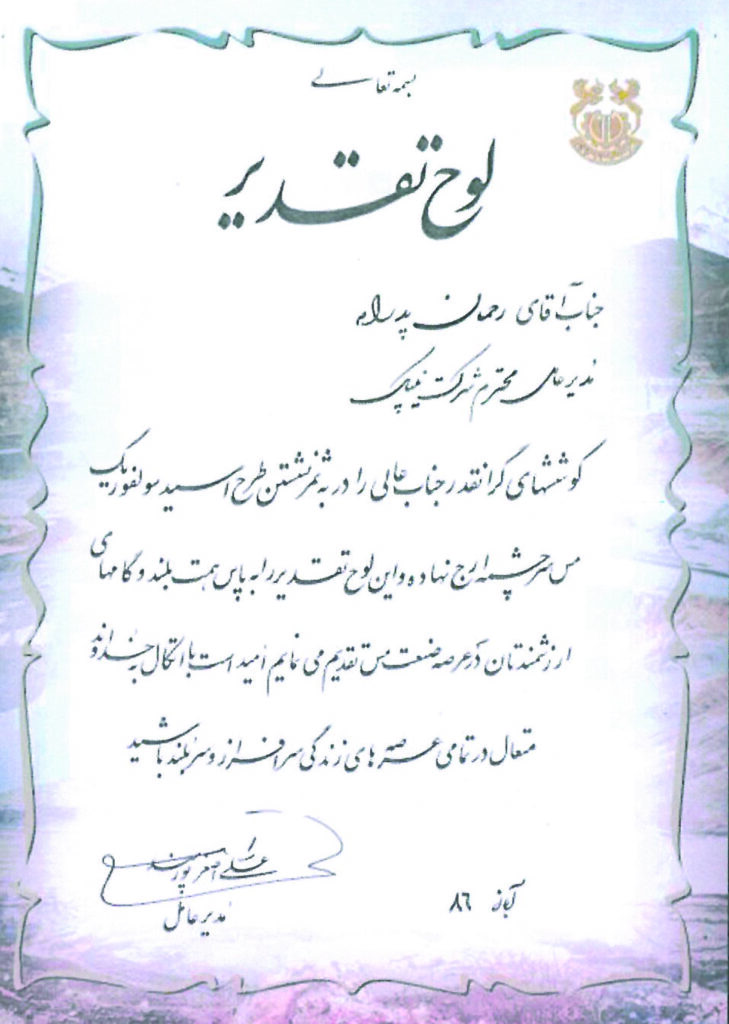 بسمه تعالی
لوح تقدیر
جناب آقای رحمان پدرام
مدیر عامل محترم شرکت نیپک
کوششهای گرانقدر جناب عالی را در به ثمر نشستن طرح اسید سولفوریک
مس سرچشمه ارج نهاده و این لوح تقدیر را به پاس همت بلند و گامهای
ارزشمندتان در عرصه صنعت مس تقدیم می نمایم امید است با اتکال به خداوند
متعال در تمامی عرصه های زندگی سرافراز و سربلند باشید
علی اصغر پورمند
مدیر عامل
آبان ۸۶